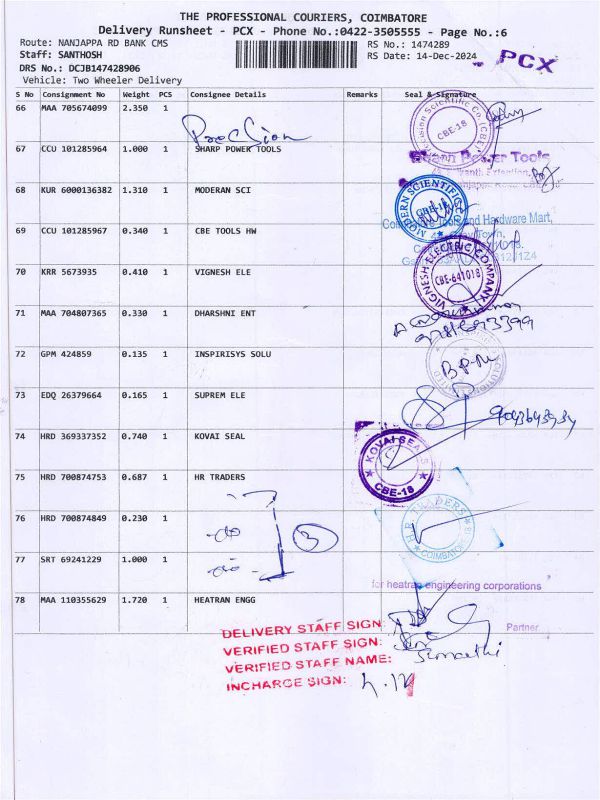 THE PROFESSIONAL COURIERS, COIMBATORE
Delivery Runsheet - PCX - Phone No.:0422-3505555 - Page No.:6
Route: NANJAPPA RD BANK CMS RS No.: 1474289
Staff: SANTHOSH RS Date: 14-Dec-2024
PCX
DRS No.: DCJB147428906
Vehicle: Two Wheeler Delivery
S No Consignment No Weight PCS Consignee Details Remarks Seal & Signature
66 MAA 705674099 2.350 1
CBE-18
67 CCU 101285964 1.000 1 SHARP POWER TOOLS
Power Tools
68 KUR 6000136382 1.310 1 MODERAN SCI
MODERN SCIENTIFIC
CBE-18
Tools and Hardware Mart,
69 CCU 101285967 0.340 1 CBE TOOLS HW
70 KRR 5673935 0.410 1 VIGNESH ELE
VIGNESH ELECTRIC COMPANY
CBE-641018
71 MAA 704807365 0.330 1 DHARSHNI ENT
72 GPM 424859 0.135 1 INSPIRISYS SOLU
73 EDQ 26379664 0.165 1 SUPREM ELE
74 HRD 369337352 0.740 1 KOVAI SEAL
KOVAI SEALS
CBE-18
75 HRD 700874753 0.687 1 HR TRADERS
HR TRADERS
COIMBATORE 18
76 HRD 700874849 0.230 1
-do-
3
77 SRT 69241229 1.000 1
-do-
for heatran engineering corporations
78 MAA 110355629 1.720 1 HEATRAN ENGG
Partner
DELIVERY STAFF SIGN:
VERIFIED STAFF SIGN:
VERIFIED STAFF NAME:
INCHARGE SIGN: